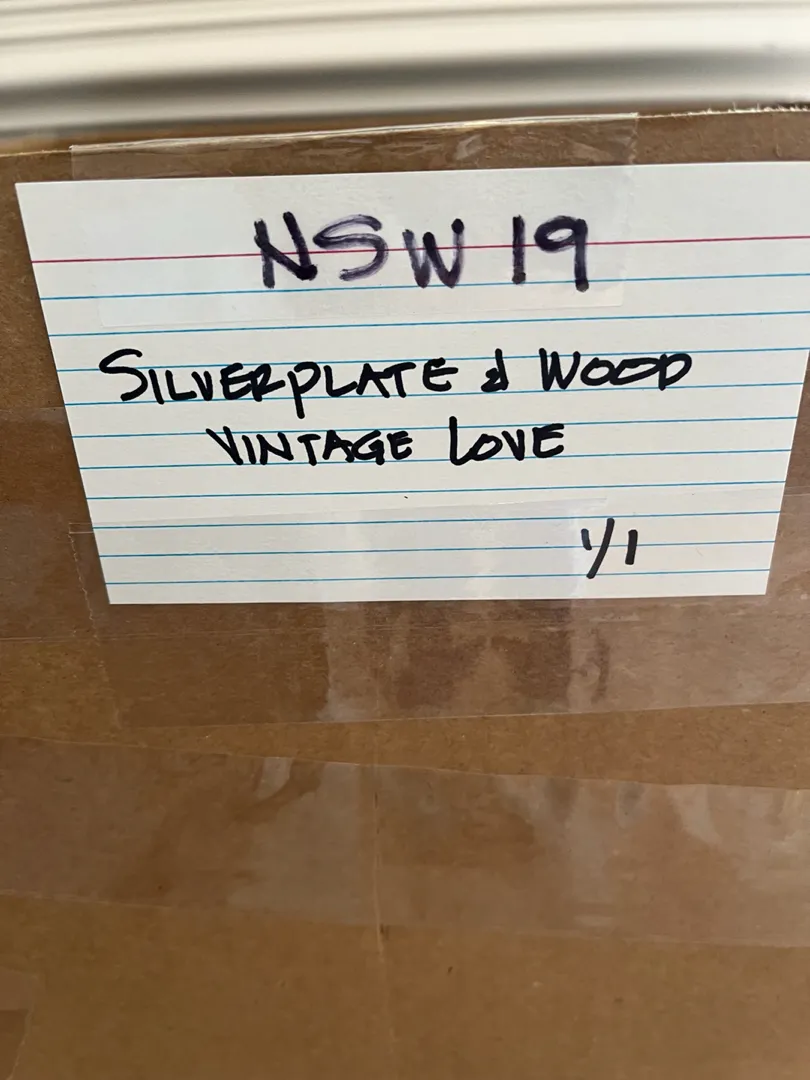 NSW 19
SILVERPLATE & WOOD
VINTAGE LOVE
1/1